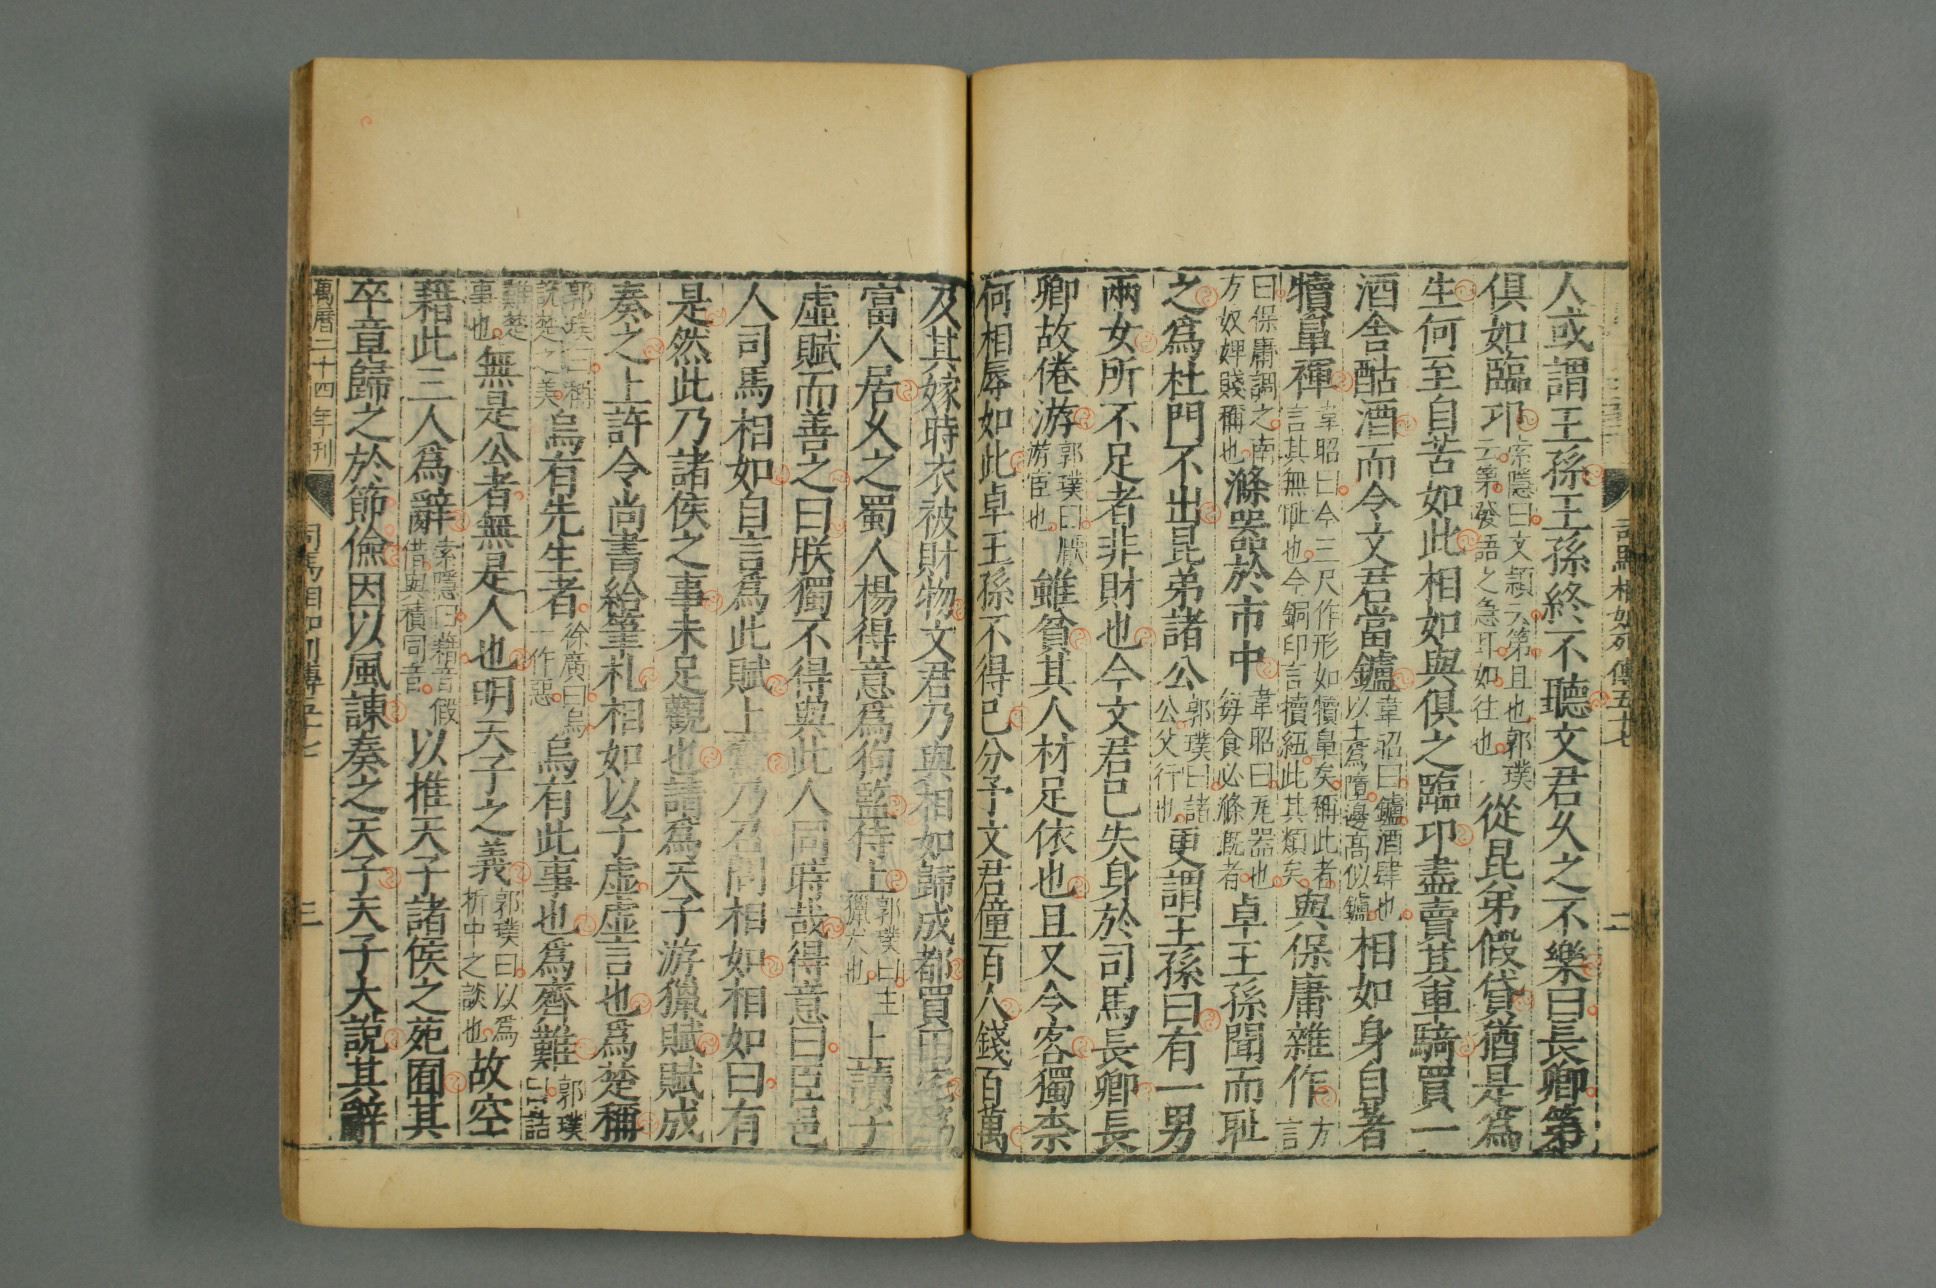 史記司馬相如列傳五十七 二
人或謂王孫王孫終不聽文君久之不樂曰長卿第
俱如臨邛索隱曰文頴云第且也郭璞云第發語之急耳如往也從昆弟假貸猶是爲
生何至自苦如此相如與俱之臨邛盡賣其車騎買一
酒舍酤酒而令文君當鑪韋昭曰鑪酒肆也以土爲墮邊高似鑪相如身自著
犢鼻褌韋昭曰今三尺作形如犢鼻矣稱此者言其無耻也今銅印言犢紐此其類矣與保庸雜作方言
曰保庸謂之甬方奴婢賤稱也滌器於市中韋昭曰瓦器也每食必滌旣者卓王孫聞而耻
之爲杜門不出昆弟諸公郭璞曰諸公父行也更謂王孫曰有一男
兩女所不足者非財也今文君已失身於司馬長卿長
卿故倦游郭璞曰厭游宦也雖貧其人材足依也且又令客獨柰
何相辱如此卓王孫不得已分予文君僮百人錢百萬
及其嫁時衣被財物文君乃與相如歸成都買田宅爲
富人居久之蜀人楊得意爲狗監侍上郭璞曰主獵犬也上讀子
虛賦而善之曰朕獨不得與此人同時哉得意曰臣邑
人司馬相如自言爲此賦上驚乃召問相如相如曰有
是然此乃諸侯之事未足觀也請爲天子游獵賦賦成
奏之上許令尚書給筆札相如以子虛虛言也爲楚稱
郭璞曰稱說楚之美烏有先生者徐廣曰烏一作惡烏有此事也爲齊難郭璞曰詰
難楚事也無是公者無是人也明天子之義郭璞曰以爲折中之談也故空
藉此三人爲辭索隱曰藉音假借與積同音以推天子諸侯之苑囿其
卒章歸之於節儉因以風諫奏之天子天子大說其辭
萬曆二十四年刊
司馬相如列傳五十七 二